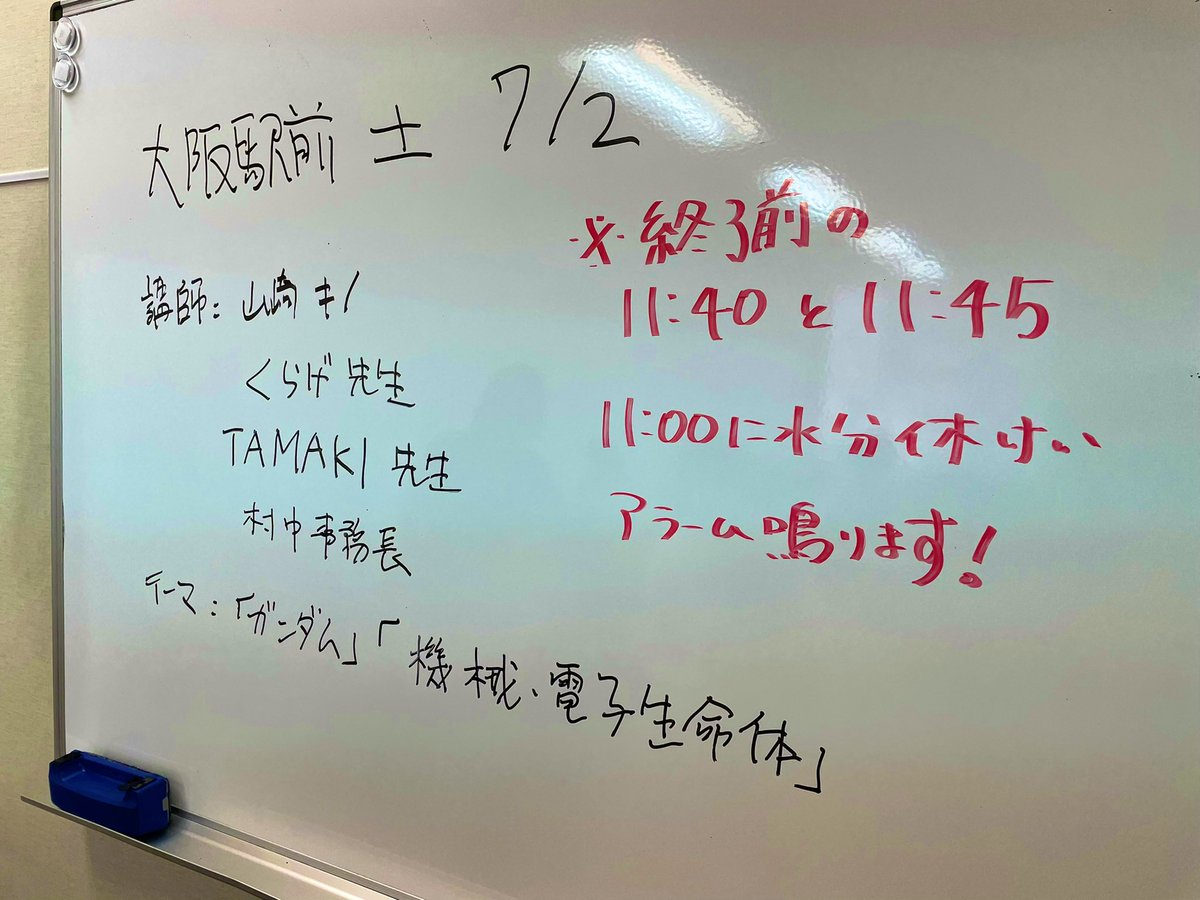 大阪駅前 土 7/2
講師: 山崎キノ
くらげ先生
TAMAKI 先生
村中事務長
テーマ:「ガンダム」「機械、電子生命体」
※終了前の
11:40と11:45
11:00に水分休けい
アラーム鳴ります!